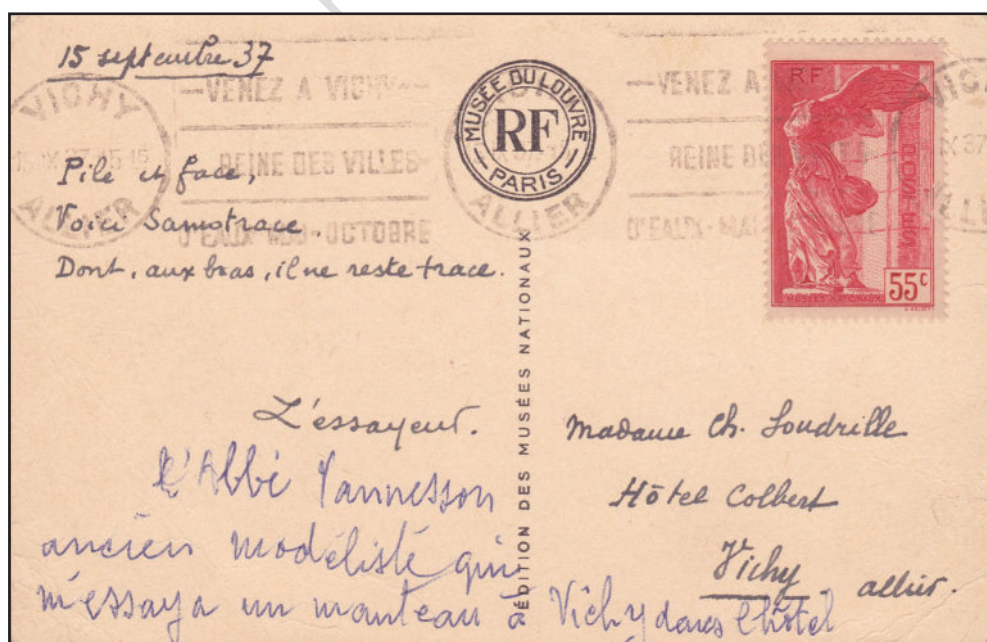 15 septembre 37
VICHY
ALLIER
—VENEZ A VICHY—
REINE DES VILLES
D'EAUX-MAI-OCTOBRE
MUSÉE DU LOUVRE
RF
PARIS
ALLIER
—VENEZ A
REINE DE
D'EAUX-MAI
RF
POSTES
MUSÉES NATIONAUX
55c
Pile et face,
Voici Samotrace.
Dont, aux bras, il ne reste trace.
L'essayeur.
L'Abbé Vannesson
ancien modéliste qui
m'essaya un manteau à Vichy dans l'hôtel
ÉDITION DES MUSÉES NATIONAUX
Madame Ch. Soudrille
Hôtel Colbert
Vichy
allier.